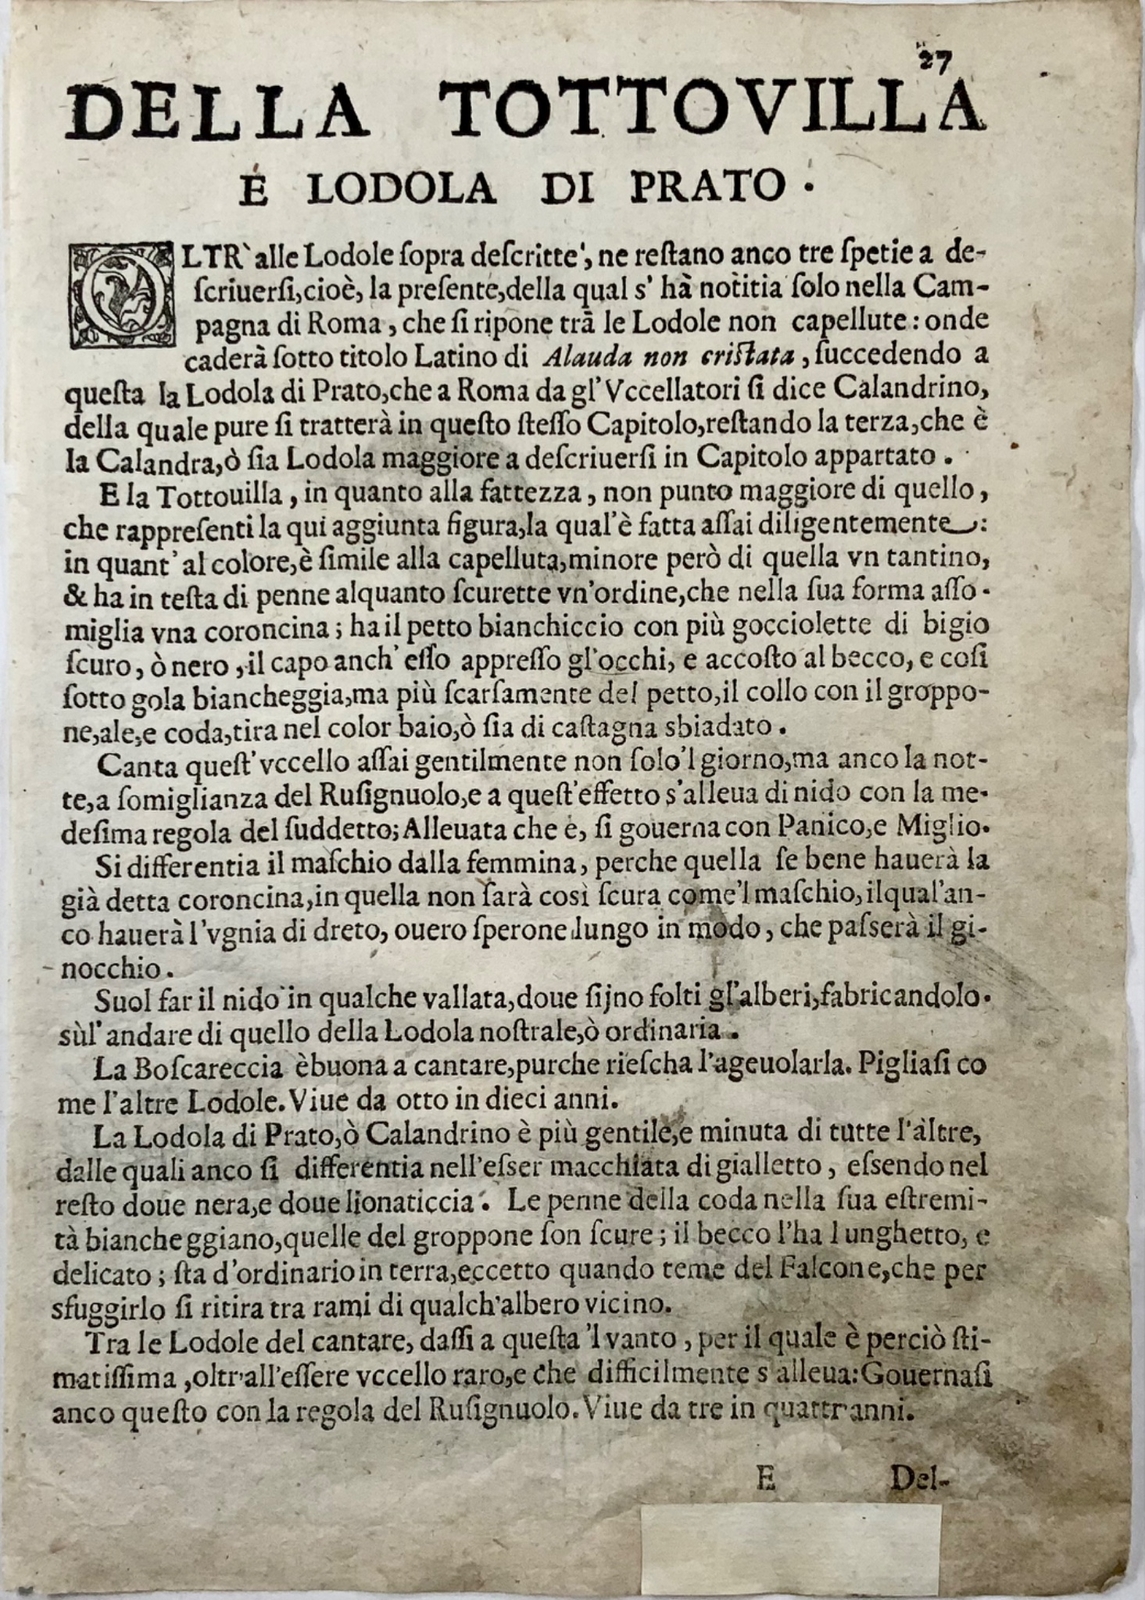 27
DELLA TOTTOVILLA
E LODOLA DI PRATO.
OLTR' alle Lodole ſopra deſcritte, ne reſtano anco tre ſpetie a de-
ſcriuerſi,cioè, la preſente,della qual s' hà notitia ſolo nella Cam-
pagna di Roma, che ſi ripone trà le Lodole non capellute: onde
caderà ſotto titolo Latino di Alauda non criſtata, ſuccedendo a
queſta la Lodola di Prato,che a Roma da gl'Vccellatori ſi dice Calandrino,
della quale pure ſi tratterà in queſto ſteſſo Capitolo,reſtando la terza,che è
la Calandra,ò ſia Lodola maggiore a deſcriuerſi in Capitolo appartato.
E la Tottouilla, in quanto alla fattezza, non punto maggiore di quello,
che rappreſenti la qui aggiunta figura,la qual'è fatta aſſai diligentemente:
in quant' al colore,è ſimile alla capelluta,minore però di quella vn tantino,
& ha in teſta di penne alquanto ſcurette vn'ordine,che nella ſua forma aſſo-
miglia vna coroncina; ha il petto bianchiccio con più gocciolette di bigio
ſcuro, ò nero, il capo anch' eſſo appreſſo gl'occhi, e accoſto al becco, e coſi
ſotto gola biancheggia,ma più ſcarſamente del petto,il collo con il groppo-
ne,ale,e coda,tira nel color baio,ò ſia di caſtagna sbiadato.
Canta queſt'vccello aſſai gentilmente non ſolo'l giorno,ma anco la not-
te,a ſomiglianza del Ruſignuolo,e a queſt'effetto s'alleua di nido con la me-
deſima regola del ſuddetto; Alleuata che è, ſi gouerna con Panico,e Miglio.
Si differentia il maſchio dalla femmina, perche quella ſe bene hauerà la
già detta coroncina,in quella non ſarà così ſcura come'l maſchio, ilqual'an-
co hauerà l'vgnia di dreto, ouero ſperone lungo in modo, che paſserà il gi-
nocchio.
Suol far il nido in qualche vallata,doue ſijno folti gl'alberi,fabricandolo
sùl'andare di quello della Lodola noſtrale,ò ordinaria.
La Boſcareccia è buona a cantare,purche rieſcha l'ageuolarla. Pigliaſi co
me l'altre Lodole. Viue da otto in dieci anni.
La Lodola di Prato,ò Calandrino è più gentile,e minuta di tutte l'altre,
dalle quali anco ſi differentia nell'eſser macchiata di gialletto, eſsendo nel
reſto doue nera,e doue lionaticcia. Le penne della coda nella ſua eſtremi-
tà biancheggiano,quelle del groppone ſon ſcure; il becco l'ha lunghetto, e
delicato; ſta d'ordinario in terra,eccetto quando teme del Falcone,che per
sfuggirlo ſi ritira tra rami di qualch'albero vicino.
Tra le Lodole del cantare, daſſi a queſta 'l vanto, per il quale è perciò ſti-
matiſſima, oltr'all'eſſere vccello raro,e che difficilmente s'alleua: Gouernaſi
anco queſto con la regola del Ruſignuolo. Viue da tre in quattr'anni.
E Del-